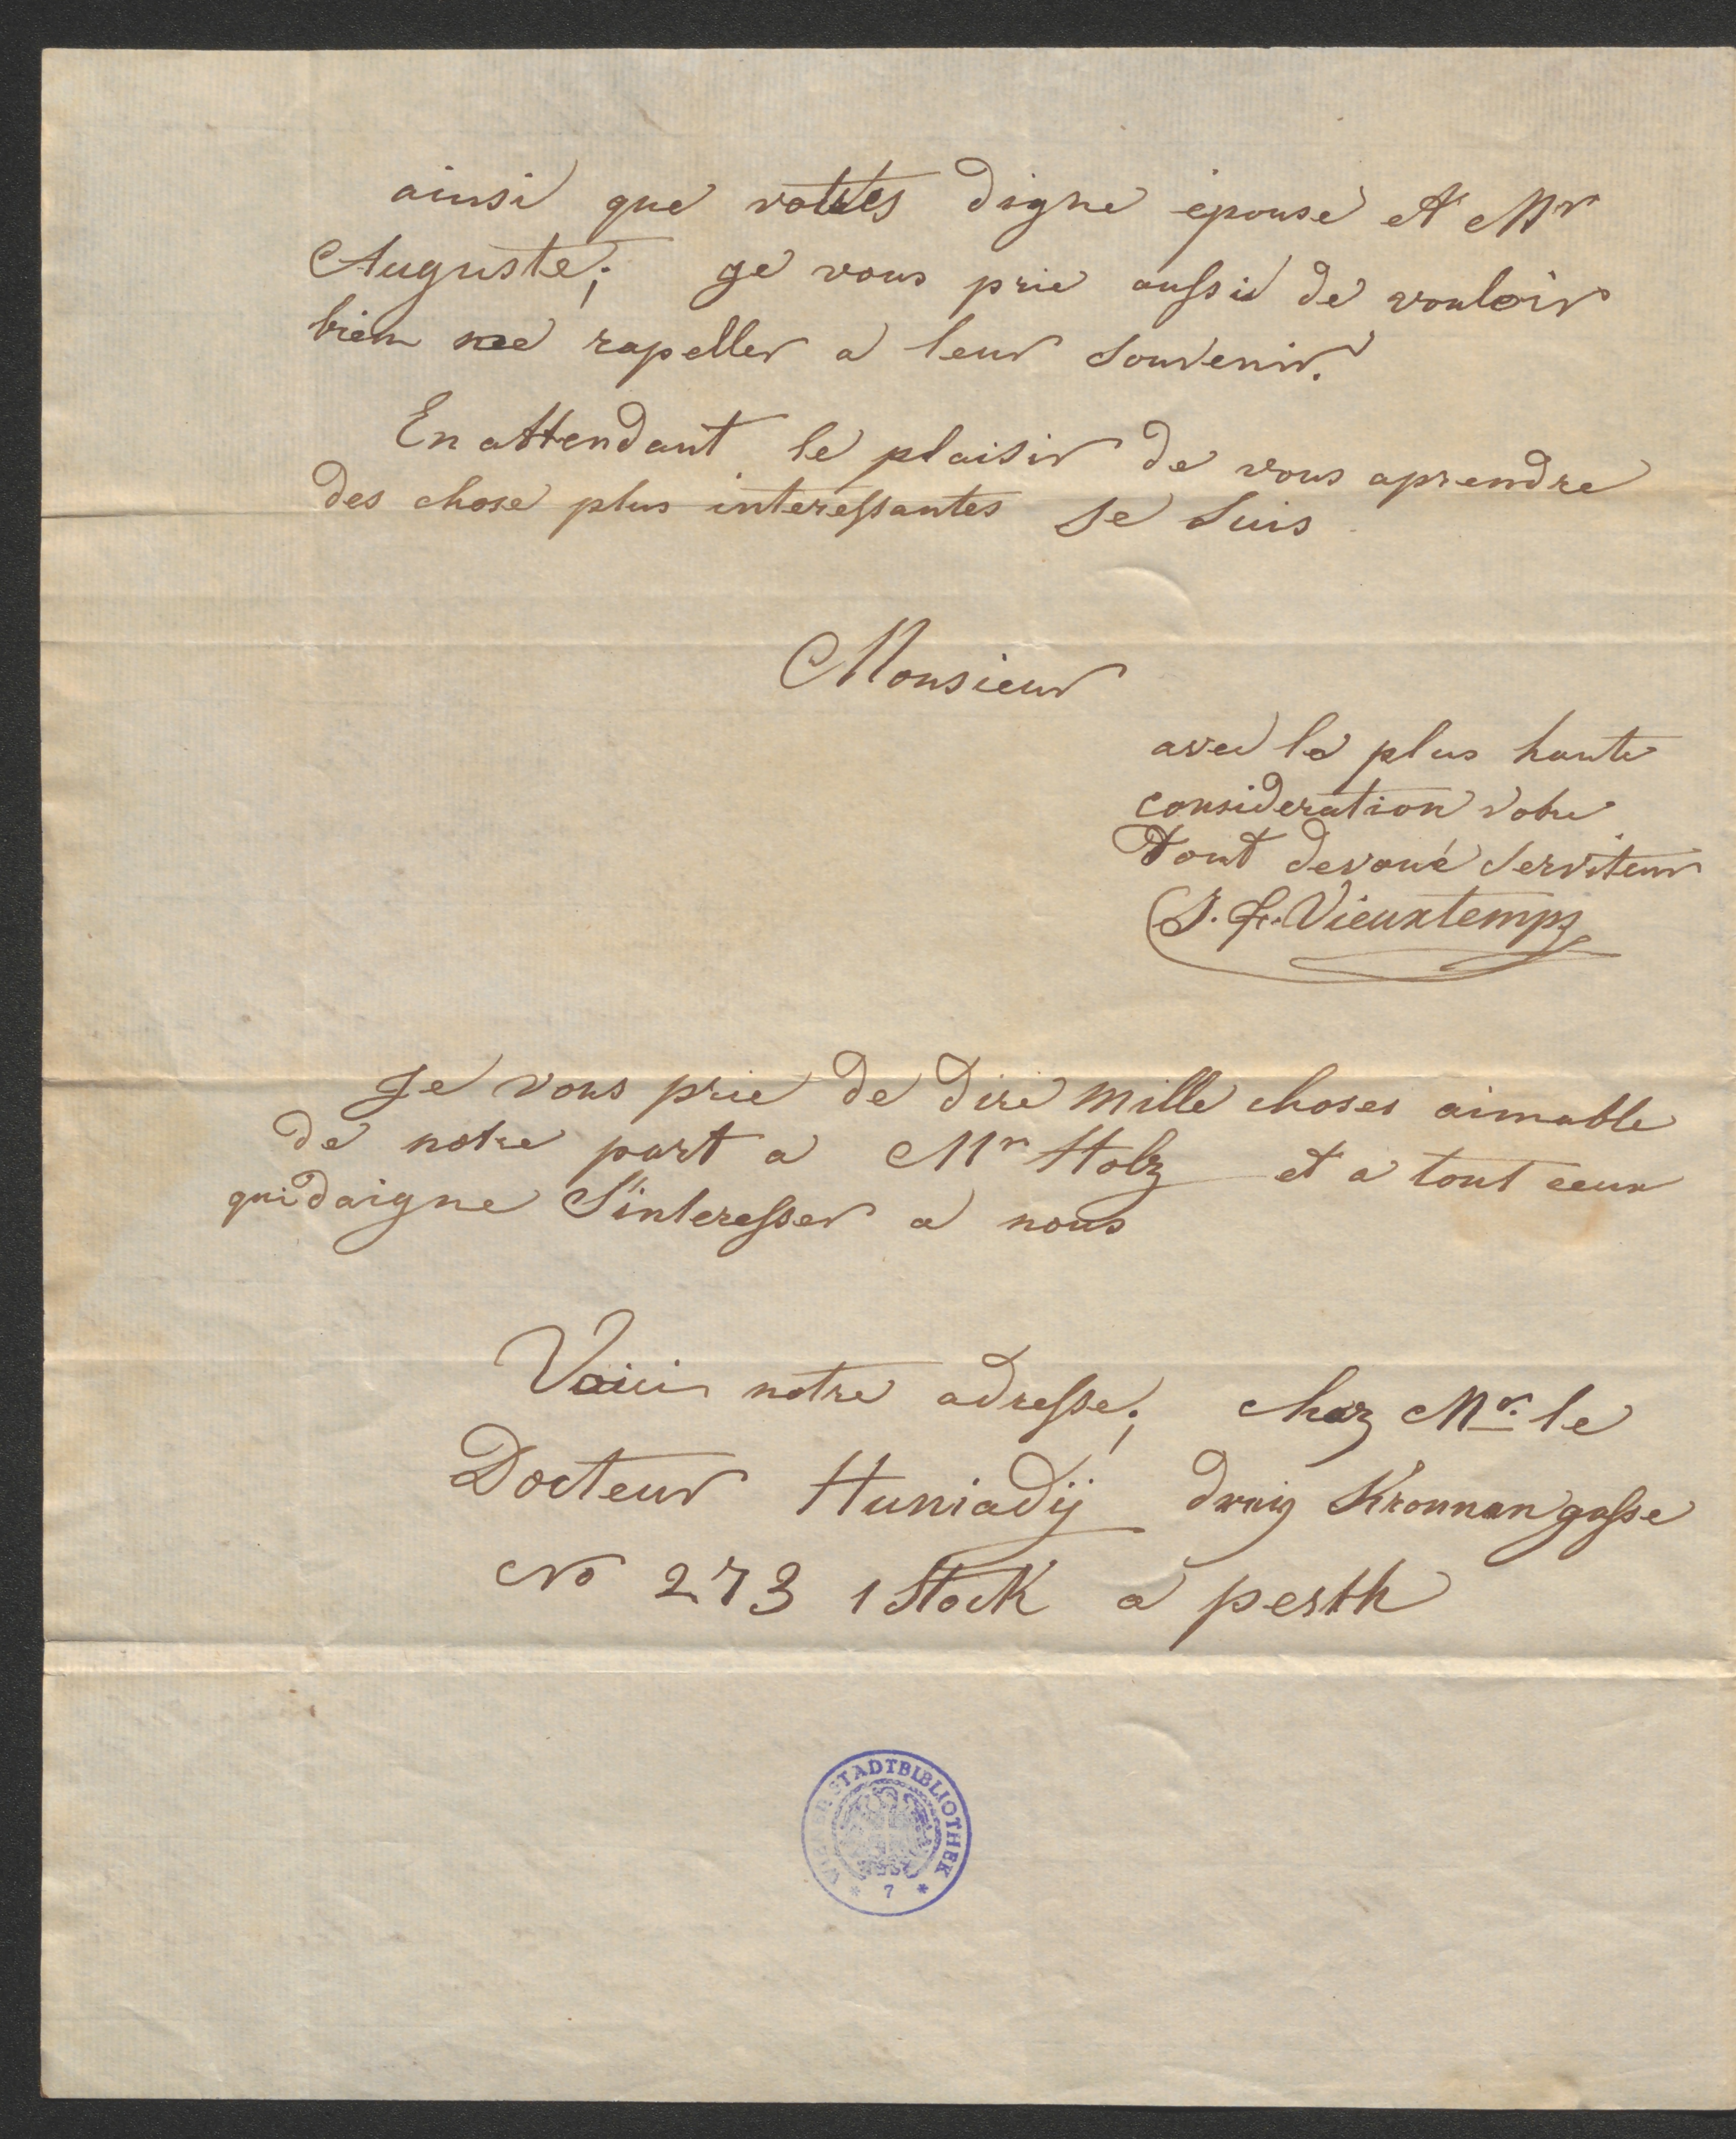 ainsi que votres digne épouse et Mr
Auguste; ge vous prie aussi de vouloir
bien me rapeller a leur souvenir.
En attendant le plaisir de vous aprendre
des chose plus interessantes Je suis
Monsieur
avec la plus haute
consideration votre
tout devoué serviteur
J. F. Vieuxtemps
Je vous prie de dire mille choses aimable
de notre part a Mr Holz et a tout ceux
qui daigne S'interesser a nous
Voici notre adresse; chez Mr. le
Docteur Huniadij dreiy Kronnangasse
No 273 1 Stock a pesth
WIENER STADTBIBLIOTHEK
* 7 *